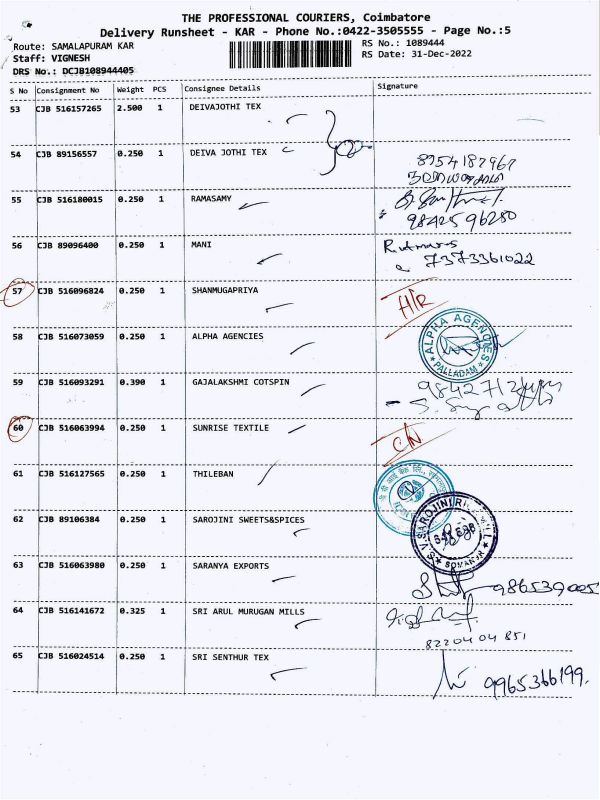 THE PROFESSIONAL COURIERS, Coimbatore
Delivery Runsheet - KAR - Phone No.:0422-3505555 - Page No.:5
Route: SAMALAPURAM KAR
RS No.: 1089444
Staff: VIGNESH
RS Date: 31-Dec-2022
DRS No.: DCJB108944405
S No Consignment No Weight PCS Consignee Details Signature
53 CJB 516157265 2.500 1 DEIVAJOTHI TEX
54 CJB 89156557 0.250 1 DEIVA JOTHI TEX
8954187967
55 CJB 516180015 0.250 1 RAMASAMY
9842596280
56 CJB 89096400 0.250 1 MANI
7373361022
57 CJB 516096824 0.250 1 SHANMUGAPRIYA
58 CJB 516073059 0.250 1 ALPHA AGENCIES
ALPHA AGENCIES
PALLADAM
59 CJB 516093291 0.390 1 GAJALAKSHMI COTSPIN
60 CJB 516063994 0.250 1 SUNRISE TEXTILE
61 CJB 516127565 0.250 1 THILEBAN
62 CJB 89106384 0.250 1 SAROJINI SWEETS&SPICES
63 CJB 516063980 0.250 1 SARANYA EXPORTS
64 CJB 516141672 0.325 1 SRI ARUL MURUGAN MILLS
8220404851
65 CJB 516024514 0.250 1 SRI SENTHUR TEX
9965366199.